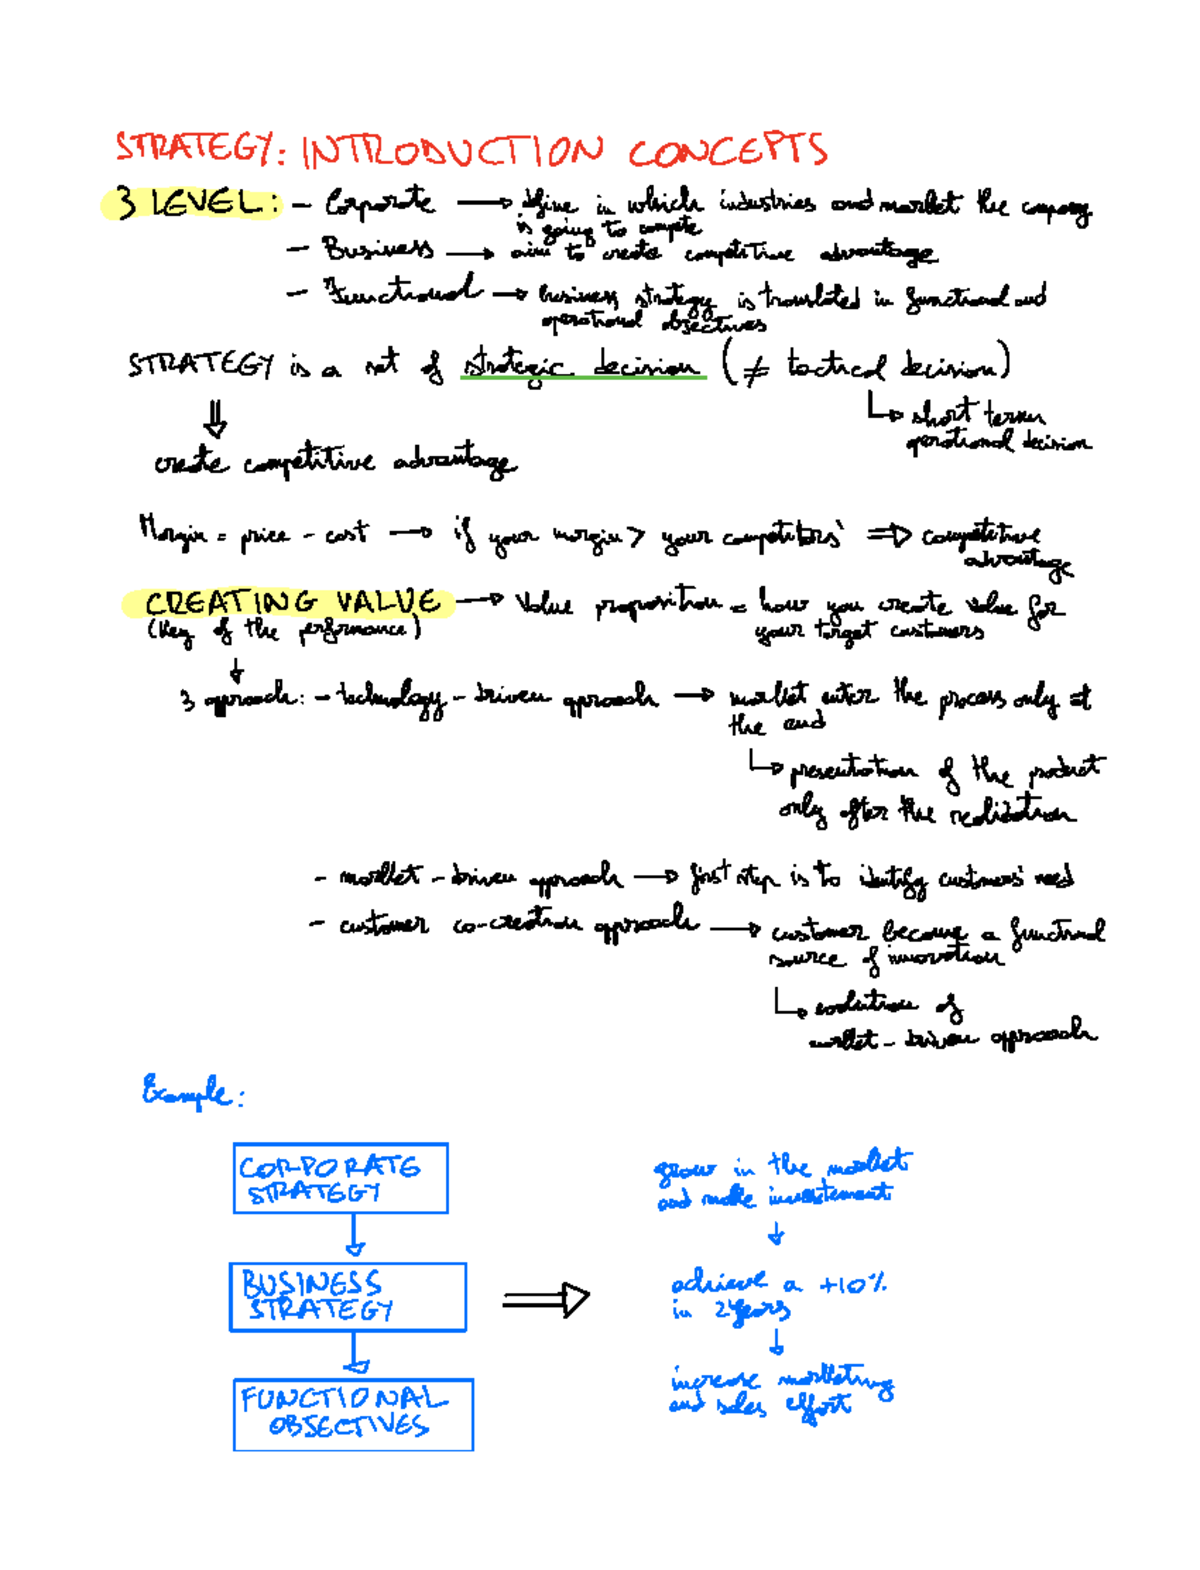 STRATEGY: INTRODUCTION CONCEPTS
3 LEVEL: - Corporate → define in which industries and market the company
is going to compete
- Business → aim to create competitive advantage
- Functional → business strategy is translated in functional and
operational objectives
STRATEGY is a set of strategic decision (≠ tactical decision)
⇓
↳ short term
operational decision
create competitive advantage
Margin = price - cost → if your margin > your competitors' ⇒ competitive
advantage
CREATING VALUE → Value proposition = how you create value for
(key of the performance)
your target customers
↓
3 approach: - technology-driven approach → market enter the process only at
the end
↳ presentation of the product
only after the realization
- market-driven approach → first step is to identify customers' need
- customer co-creation approach → customer become a functional
source of innovation
↳ evolution of
market-driven approach
Example:
CORPORATE
STRATEGY
↓
BUSINESS
STRATEGY
↓
FUNCTIONAL
OBJECTIVES
⇒
grow in the market
and make investement
↓
achieve a +10%
in 2 years
↓
increase marketing
and sales effort